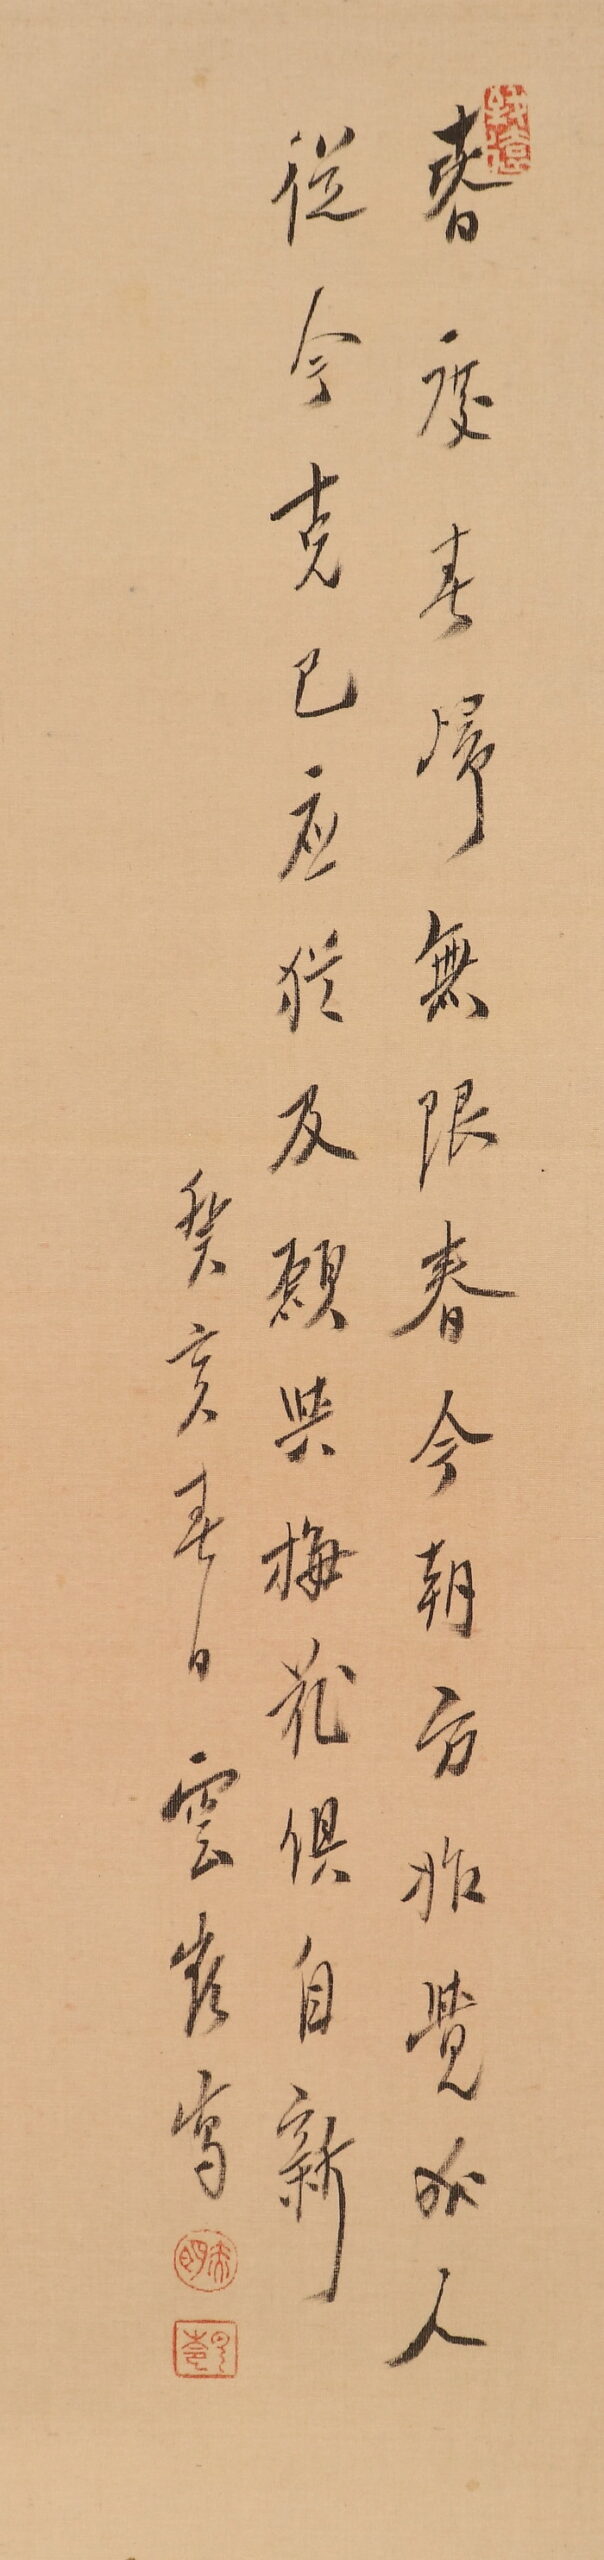 春度春歸無限春今朝方始覺成人
從今克己應猶及願與梅花俱自新
癸亥春日雲岩寫